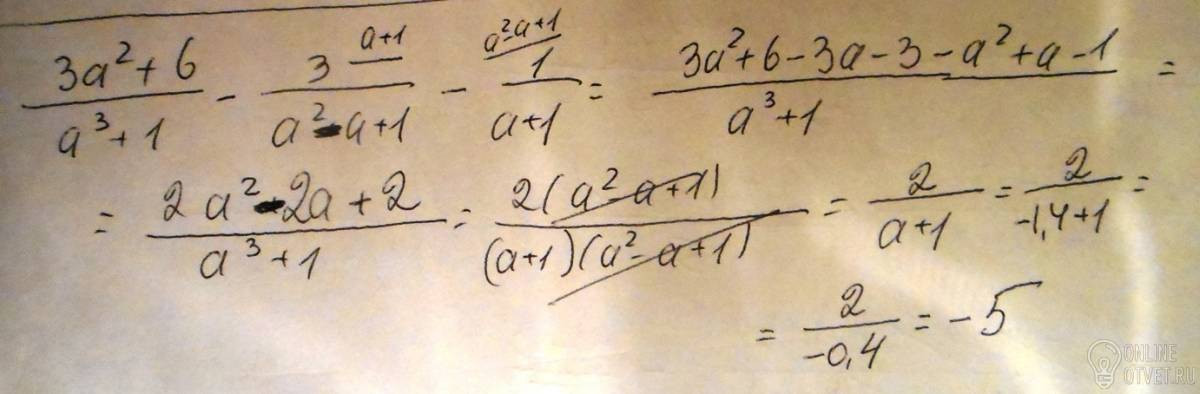 (3a² + 6)/(a³ + 1) - 3 (a+1)/(a² - a + 1) - 1 (a²-a+1)/(a+1) = (3a² + 6 - 3a - 3 - a² + a - 1)/(a³ + 1) =
= (2a² - 2a + 2)/(a³ + 1) = 2(a² - a + 1)/((a+1)(a² - a + 1)) = 2/(a+1) = 2/(-1,4+1) =
= 2/(-0,4) = -5
ONLINE
OTVET.RU